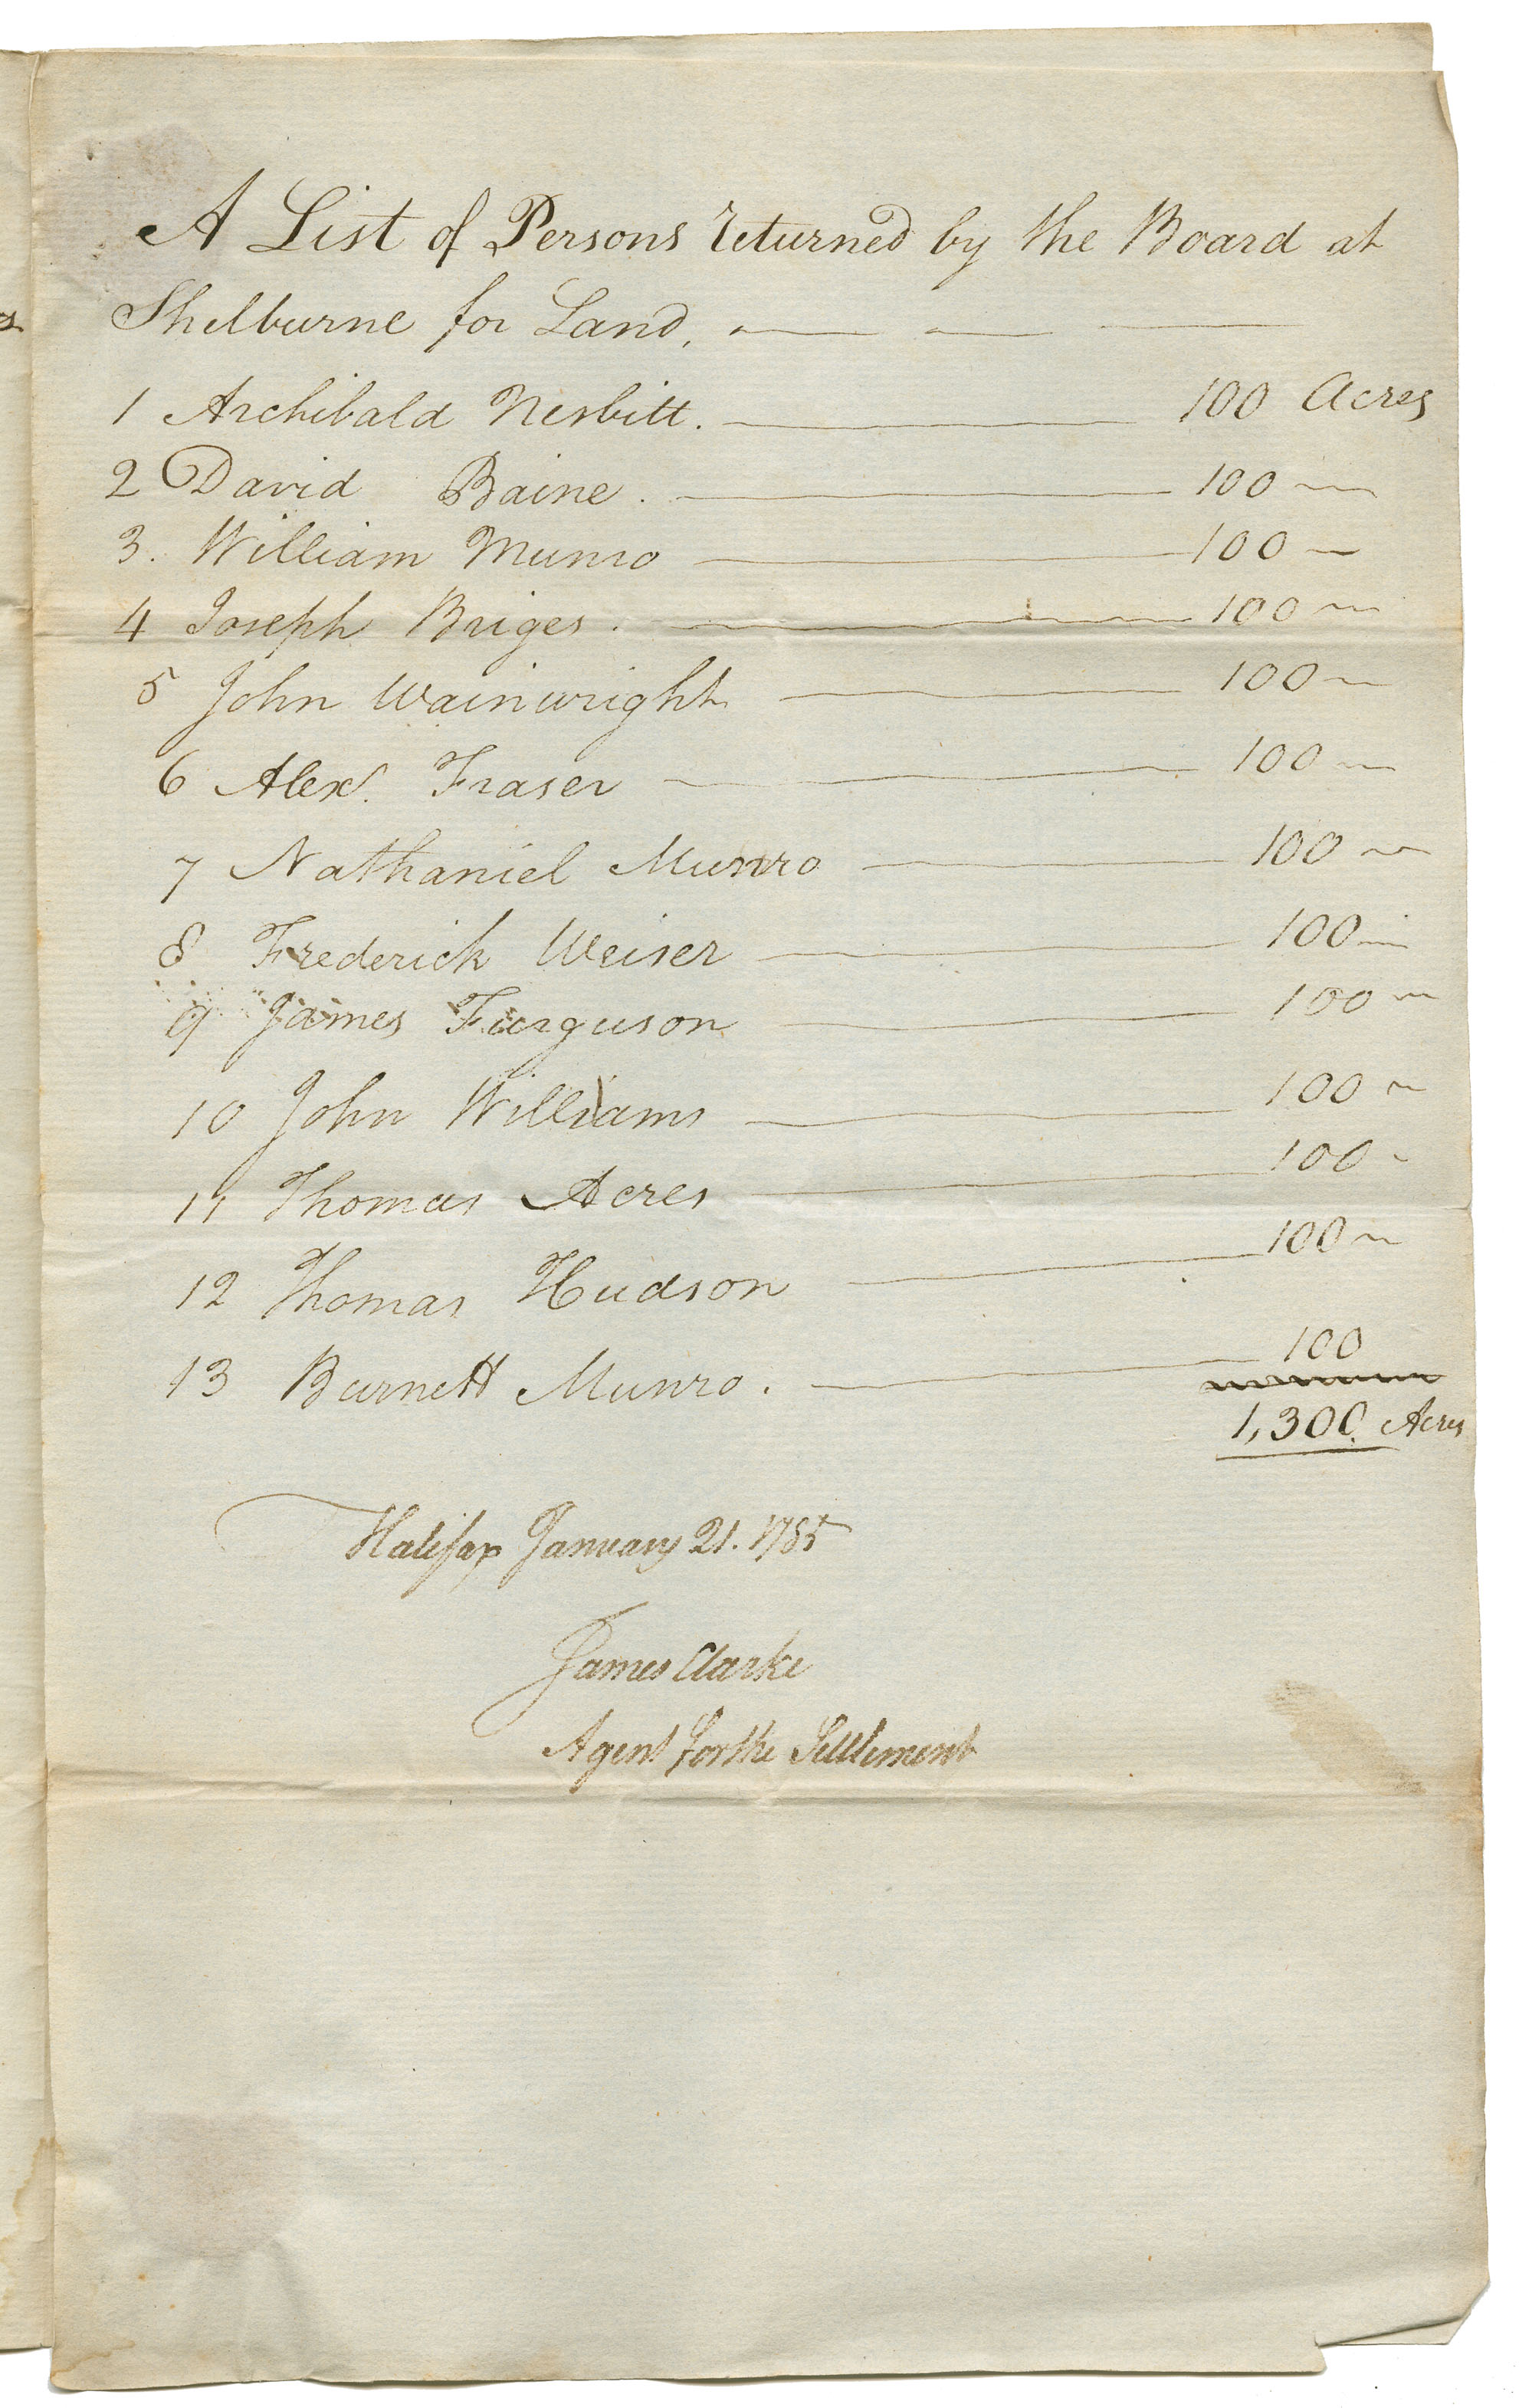 A List of Persons returned by the Board at
Shelburne for Land,
1 Archibald Nesbitt. 100 Acres
2 David Baine. 100
3. William Munro 100
4 Joseph Briges. 100
5 John Wainwright 100
6 Alexr. Fraser 100
7 Nathaniel Munro 100
8 Frederick Weiser 100
9 James Furguson 100
10 John Williams 100
11 Thomas Acres 100
12 Thomas Hudson 100
13 Burnett Munro. 100
1,300 Acres
Halifax January 21. 1785
James Clarke
Agent for the Settlement